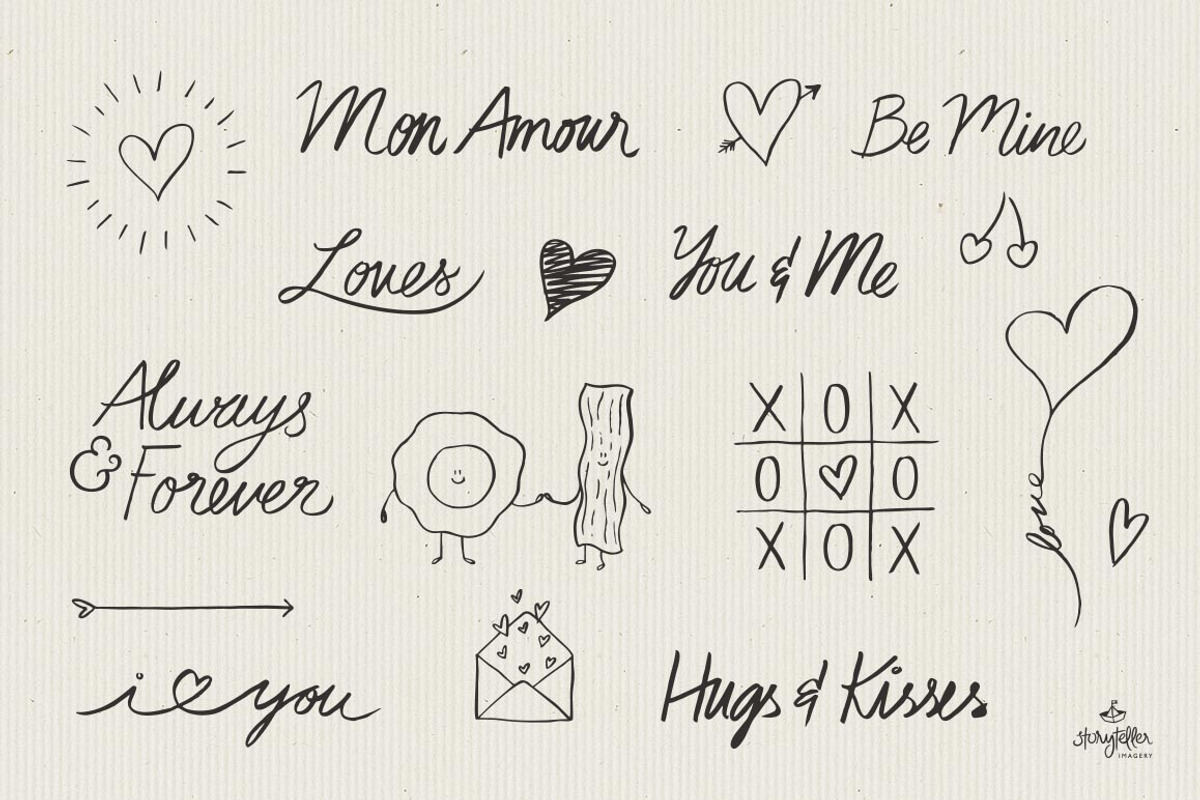 Mon Amour
Be Mine
Loves
You & Me
Always
& Forever
X O X
O O
X O X
love
i you
Hugs & Kisses
storyteller
IMAGERY